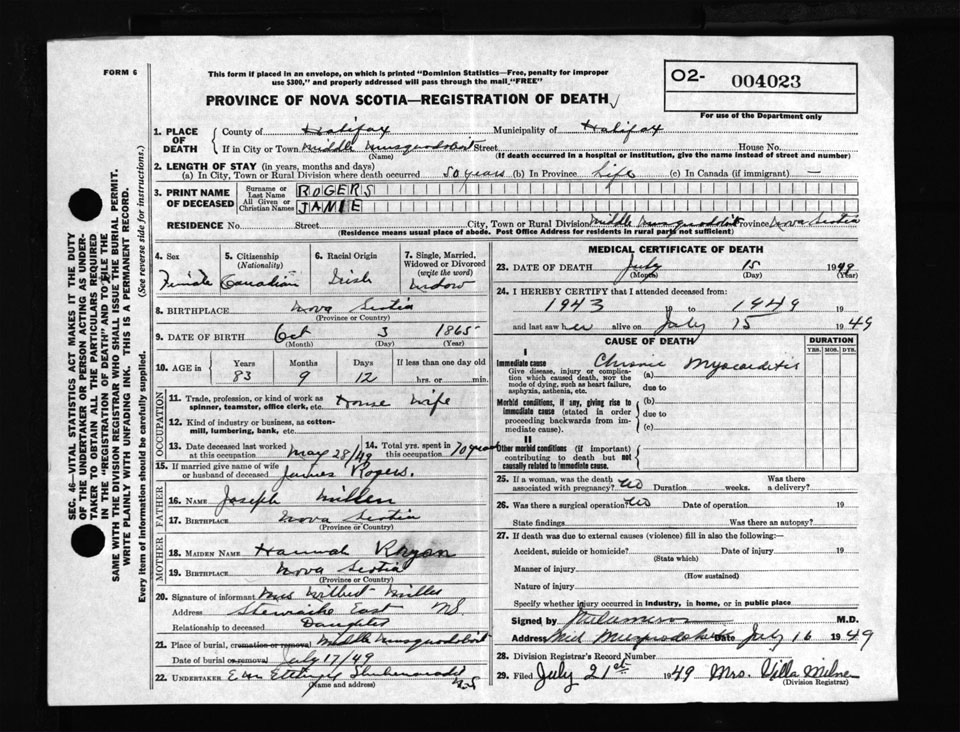 FORM 6
This form if placed in an envelope, on which is printed "Dominion Statistics—Free, penalty for improper
use $300," and properly addressed will pass through the mail "FREE"
02- 004023
For use of the Department only
PROVINCE OF NOVA SCOTIA—REGISTRATION OF DEATH
SEC. 46—VITAL STATISTICS ACT MAKES IT THE DUTY
OF THE UNDERTAKER OR PERSON ACTING AS UNDER-
TAKER TO OBTAIN ALL THE PARTICULARS REQUIRED
IN THE "REGISTRATION OF DEATH" AND TO FILE THE
SAME WITH THE DIVISION REGISTRAR WHO SHALL ISSUE THE BURIAL PERMIT.
WRITE PLAINLY WITH UNFADING INK. THIS IS A PERMANENT RECORD.
Every item of information should be carefully supplied. (See reverse side for instructions.)
1. PLACE OF DEATH
County of Halifax Municipality of Halifax
If in City or Town Middle Musquodoboit Street House No.
(Name) (If death occurred in a hospital or institution, give the name instead of street and number)
2. LENGTH OF STAY (in years, months and days)
(a) In City, Town or Rural Division where death occurred 50 years (b) In Province Life (c) In Canada (if immigrant) —
3. PRINT NAME OF DECEASED
Surname or Last Name ROGERS
All Given or Christian Names JANIE
RESIDENCE No. Street City, Town or Rural Division Middle Musquodoboit Province Nova Scotia
(Residence means usual place of abode. Post Office Address for residents in rural parts not sufficient)
4. Sex Female
5. Citizenship (Nationality) Canadian
6. Racial Origin Irish
7. Single, Married, Widowed or Divorced (write the word) Widow
8. BIRTHPLACE Nova Scotia
(Province or Country)
9. DATE OF BIRTH Oct 3 1865
(Month) (Day) (Year)
10. AGE in Years Months Days If less than one day old
83 9 12 hrs. or min.
OCCUPATION
11. Trade, profession, or kind of work as
spinner, teamster, office clerk, etc. House Wife
12. Kind of industry or business, as cotton-
mill, lumbering, bank, etc.
13. Date deceased last worked at this occupation May 28/49
14. Total yrs. spent in this occupation 70 years
15. If married give name of wife
or husband of deceased James Rogers.
FATHER
16. NAME Joseph Millen
17. BIRTHPLACE Nova Scotia
(Province or Country)
MOTHER
18. MAIDEN NAME Hannah
19. BIRTHPLACE Nova Scotia
(Province or Country)
20. Signature of informant Mrs Wilbert
Address Stewiacke East NS.
Relationship to deceased Daughter
21. Place of burial, cremation or removal Middle Musquodoboit
Date of burial or removal July 17/49
22. UNDERTAKER Shubenacadie N.S
(Name and address)
MEDICAL CERTIFICATE OF DEATH
23. DATE OF DEATH July 15 1949
(Month) (Day) (Year)
24. I HEREBY CERTIFY that I attended deceased from:
1943 19 to 1949 19
and last saw her alive on July 15 1949
CAUSE OF DEATH DURATION
YRS. MOS. DYS.
I
Immediate cause
Give disease, injury or complica-
tion which caused death, NOT the
mode of dying, such as heart failure,
asphyxia, asthenia, etc.
(a) Chronic Myocarditis
due to
Morbid conditions, if any, giving rise to
immediate cause (stated in order
proceeding backwards from im-
mediate cause).
(b)
due to
(c)
II
Other morbid conditions (if important)
contributing to death but not
causally related to immediate cause.
25. If a woman, was the death
associated with pregnancy? No Duration weeks. Was there a delivery?
26. Was there a surgical operation? No Date of operation 19
State findings Was there an autopsy?
27. If death was due to external causes (violence) fill in also the following:—
Accident, suicide or homicide? Date of injury 19
(State which)
Manner of injury
(How sustained)
Nature of injury
Specify whether injury occurred in industry, in home, or in public place
Signed by M.D.
Address Mid Musquodoboit Date July 16 1949
28. Division Registrar's Record Number
29. Filed July 21st 1949 Mrs. Villa Milne
(Division Registrar)